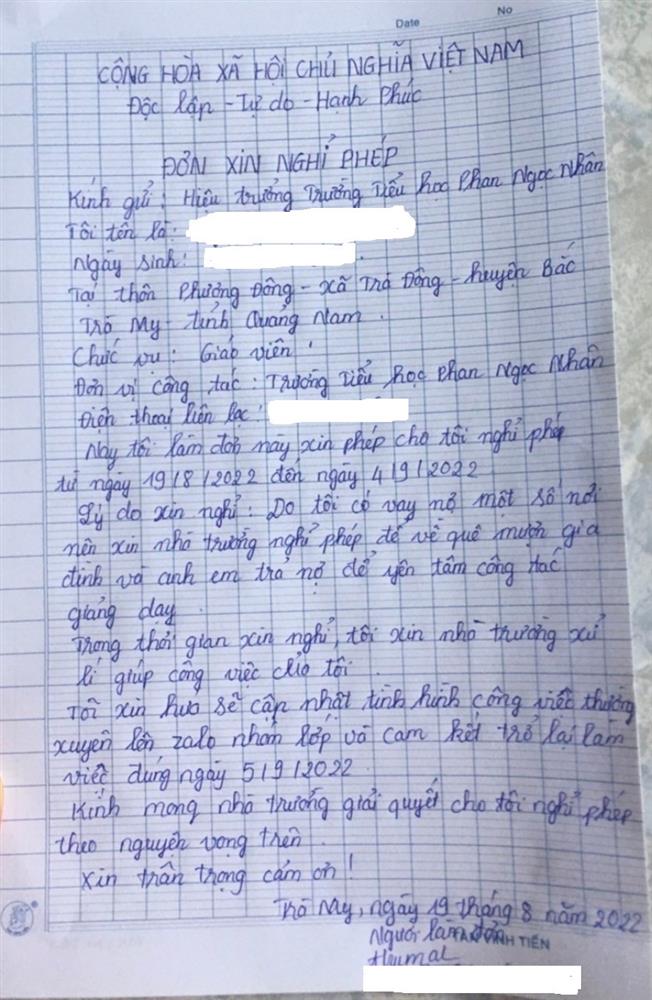 Date No
CỘNG HÒA XÃ HỘI CHỦ NGHĨA VIỆT NAM
Độc lập - Tự do - Hạnh Phúc
ĐƠN XIN NGHỈ PHÉP
Kính gửi : Hiệu trưởng Trường Tiểu học Phan Ngọc Nhân
Tôi tên là:
Ngày sinh:
Tại thôn Phương Đông - xã Trà Đông - huyện Bắc
Trà My - tỉnh Quảng Nam .
Chức vụ : Giáo viên
Đơn vị công tác : Trường Tiểu học Phan Ngọc Nhân
Điện thoại liên lạc :
Nay tôi làm đơn này xin phép cho tôi nghỉ phép
từ ngày 19/8/2022 đến ngày 4/9/2022
Lý do xin nghỉ : Do tôi có vay nợ một số nơi
nên xin nhà trường nghỉ phép để về quê mượn gia
đình và anh em trả nợ để yên tâm công tác
giảng dạy .
Trong thời gian xin nghỉ, tôi xin nhà trường xử
lí giúp công việc cho tôi .
Tôi xin hứa sẽ cập nhật tình hình công việc thường
xuyên lên zalo nhóm lớp và cam kết trở lại làm
việc đúng ngày 5/9/2022
Kính mong nhà trường giải quyết cho tôi nghỉ phép
theo nguyện vọng trên .
Xin trân trọng cảm ơn !
Trà My, ngày 19 tháng 8 năm 2022
Người làm đơn
VĨNH TIẾN